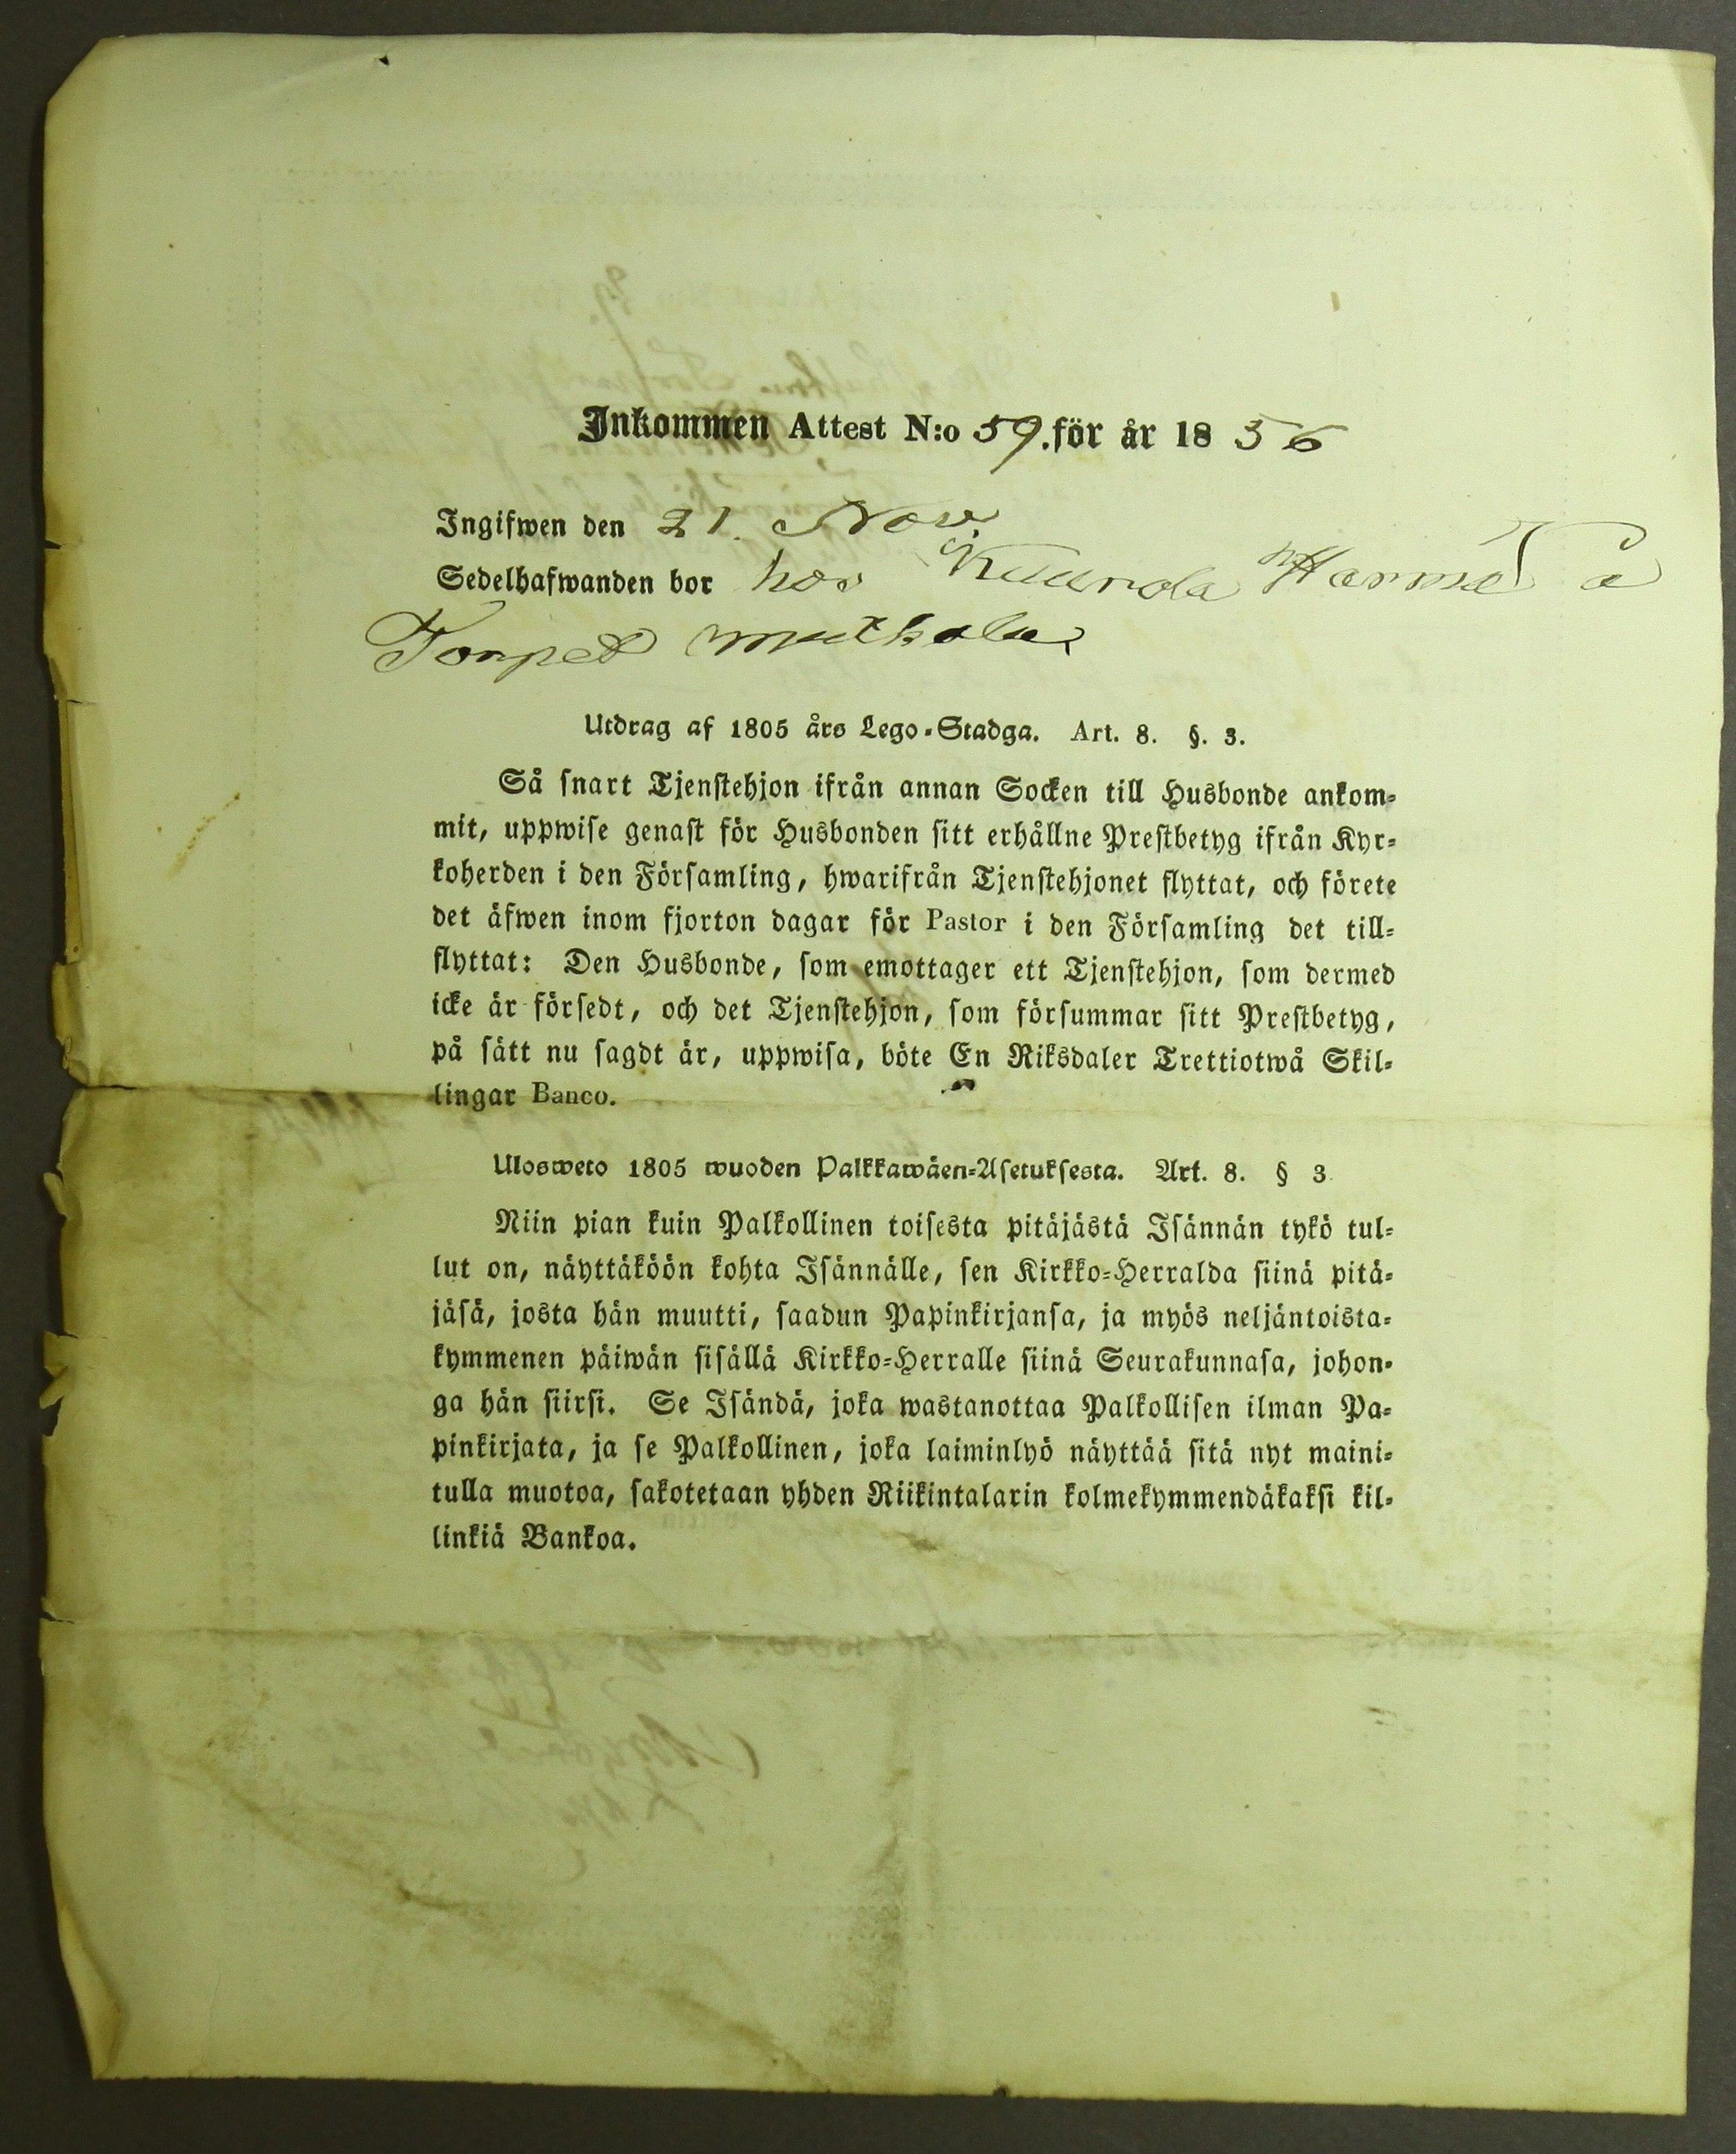 Inkommen Attest N:o 59. för år 1856
Ingifwen den 21. Nov.
Sedelhafwanden bor hos Kuunola å
Torpet
Utdrag af 1805 års Lego-Stadga. Art. 8. §. 3.
Så snart Tjenstehjon ifrån annan Socken till Husbonde ankom-
mit, uppwise genast för Husbonden sitt erhållne Prestbetyg ifrån Kyr-
koherden i den Församling, hwarifrån Tjenstehjonet flyttat, och förete
det äfwen inom fjorton dagar för Pastor i den Församling det till-
flyttat: Den Husbonde, som emottager ett Tjenstehjon, som dermed
icke är försedt, och det Tjenstehjon, som försummar sitt Prestbetyg,
på sätt nu sagdt är, uppwisa, böte En Riksdaler Trettiotwå Skil-
lingar Banco.
Ulosweto 1805 wuoden Palkkawäen-Asetuksesta. Art. 8. § 3
Niin pian kuin Palkollinen toisesta pitäjästä Isännän tykö tul-
lut on, näyttäköön kohta Isännälle, sen Kirkko-Herralda siinä pitä-
jäsä, josta hän muutti, saadun Papinkirjansa, ja myös neljäntoista-
kymmenen päiwän sisällä Kirkko-Herralle siinä Seurakunnasa, johon-
ga hän siirsi. Se Isändä, joka wastanottaa Palkollisen ilman Pa-
pinkirjata, ja se Palkollinen, joka laiminlyö näyttää sitä nyt maini-
tulla muotoa, sakotetaan yhden Riikintalarin kolmekymmendäkaksi kil-
linkiä Bankoa.